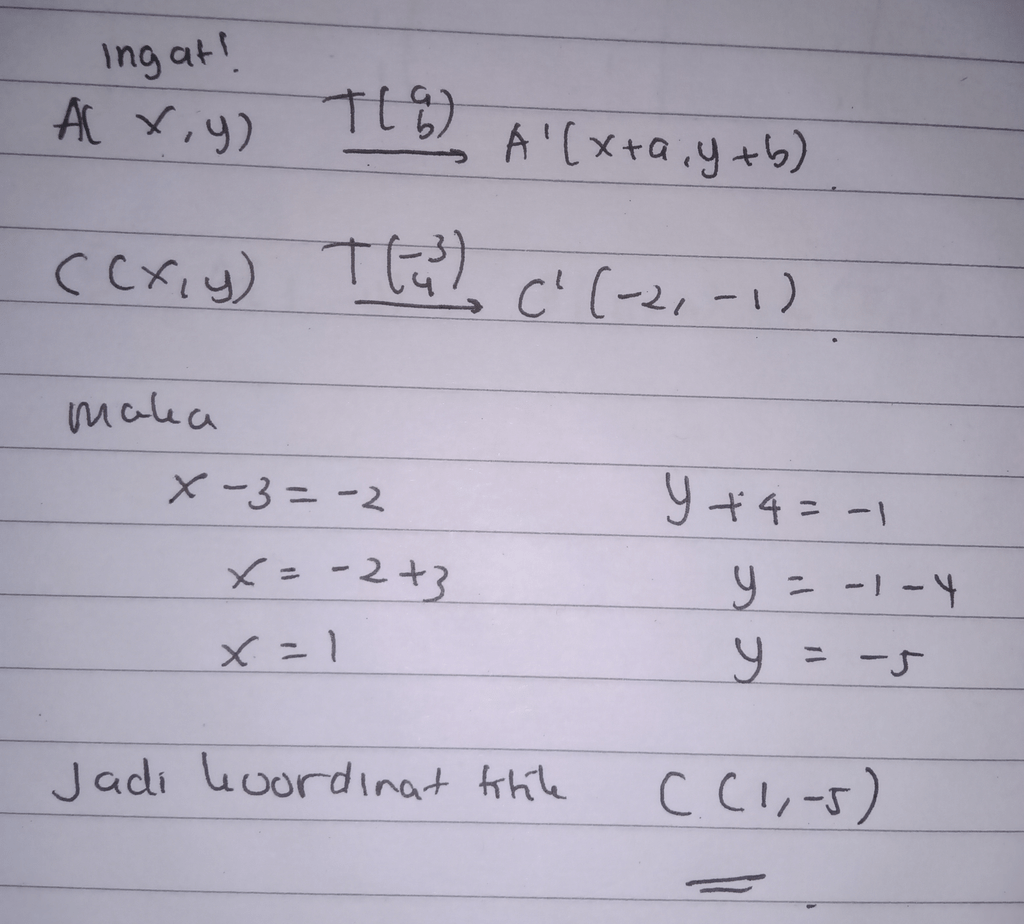 Ingat!
A(x,y) T(a b) → A'(x+a,y+b)
C(x,y) T(-3 4) → C'(-2,-1)
maka
x-3=-2 y+4=-1
x=-2+3 y=-1-4
x=1 y=-5
Jadi koordinat titik C(1,-5)